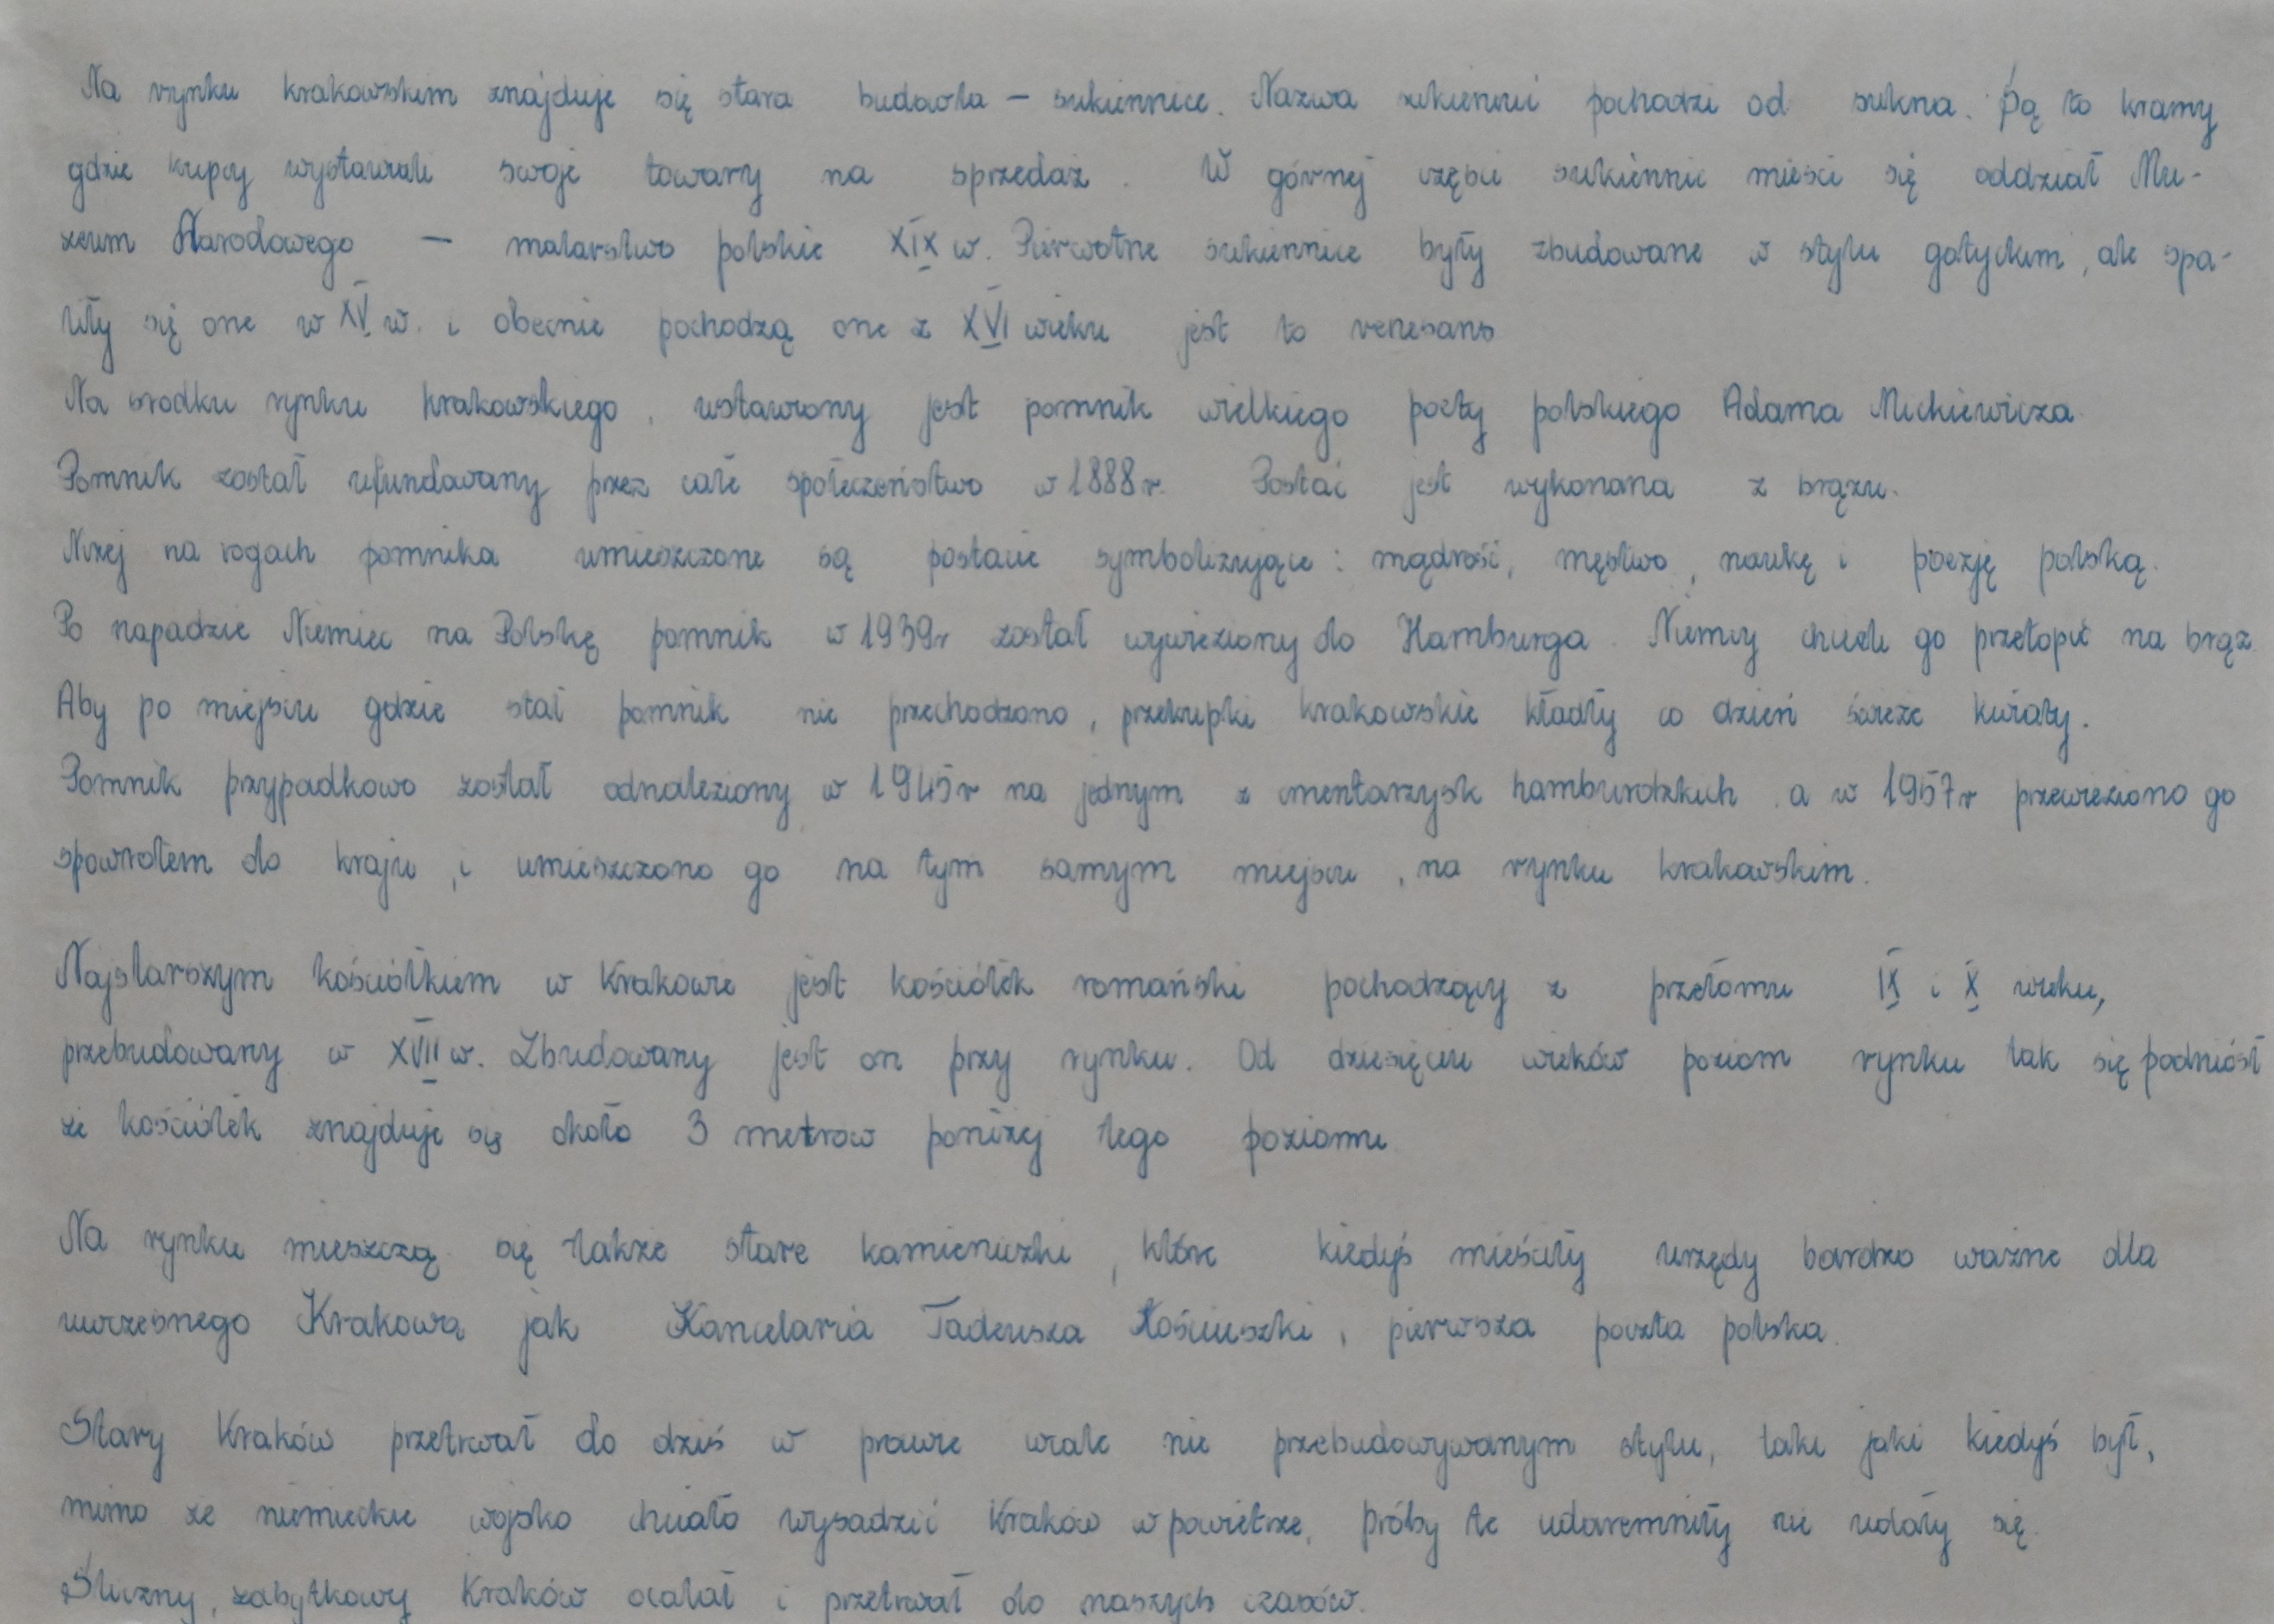 Na rynku krakowskim znajduje się stara budowla – sukiennice. Nazwa sukiennic pochodzi od sukna. Są to kramy
gdzie kupcy wystawiali swoje towary na sprzedaż. W górnej części sukiennic mieści się oddział Mu-
zeum Narodowego – malarstwo polskie XIX w. Pierwotne sukiennice były zbudowane w stylu gotyckim, ale spa-
liły się one w XV w. i obecnie pochodzą one z XVI wieku jest to renesans
Na srodku rynku krakowskiego, ustawiony jest pomnik wielkiego poety polskiego Adama Mickiewicza
Pomnik został ufundowany przez całe społeczeństwo w 1888 r. Postać jest wykonana z brązu.
Niżej na rogach pomnika umieszczone są postacie symbolizujące: mądrość, męstwo, naukę i poezję polską.
Po napadzie Niemiec na Polskę pomnik w 1939r został wywieziony do Hamburga. Niemcy chcieli go przetopić na brąz.
Aby po miejscu gdzie stał pomnik nie przechodzono, przekupki krakowskie kładły co dzień świeże kwiaty.
Pomnik przypadkowo został odnaleziony w 1945r na jednym z cmentarzysk hamburdzkich, a w 1957r przewieziono go
spowrotem do kraju, i umieszczono go na tym samym miejscu, na rynku krakowskim.
Najstarszym kościółkiem w Krakowie jest kościółek romański pochodzący z przełomu IX i X wieku,
przebudowany w XVII w. Zbudowany jest on przy rynku. Od dziesięciu wieków poziom rynku tak się podniósł
że kościółek znajduje się około 3 metrow poniżej tego poziomu
Na rynku mieszczą się także stare kamieniczki, które kiedyś mieściły urzędy bardzo ważne dla
uwczesnego Krakowa jak Kancelaria Tadeusza Kościuszki, pierwsza poczta polska.
Stary Kraków przetrwał do dziś w prawie wcale nie przebudowywanym stylu, taki jaki kiedyś był,
mimo że niemieckie wojsko chciało wysadzić Kraków w powietrze, próby te udaremniły nie udały się.
Śliczny, zabytkowy Kraków ocalał i przetrwał do naszych czasów.